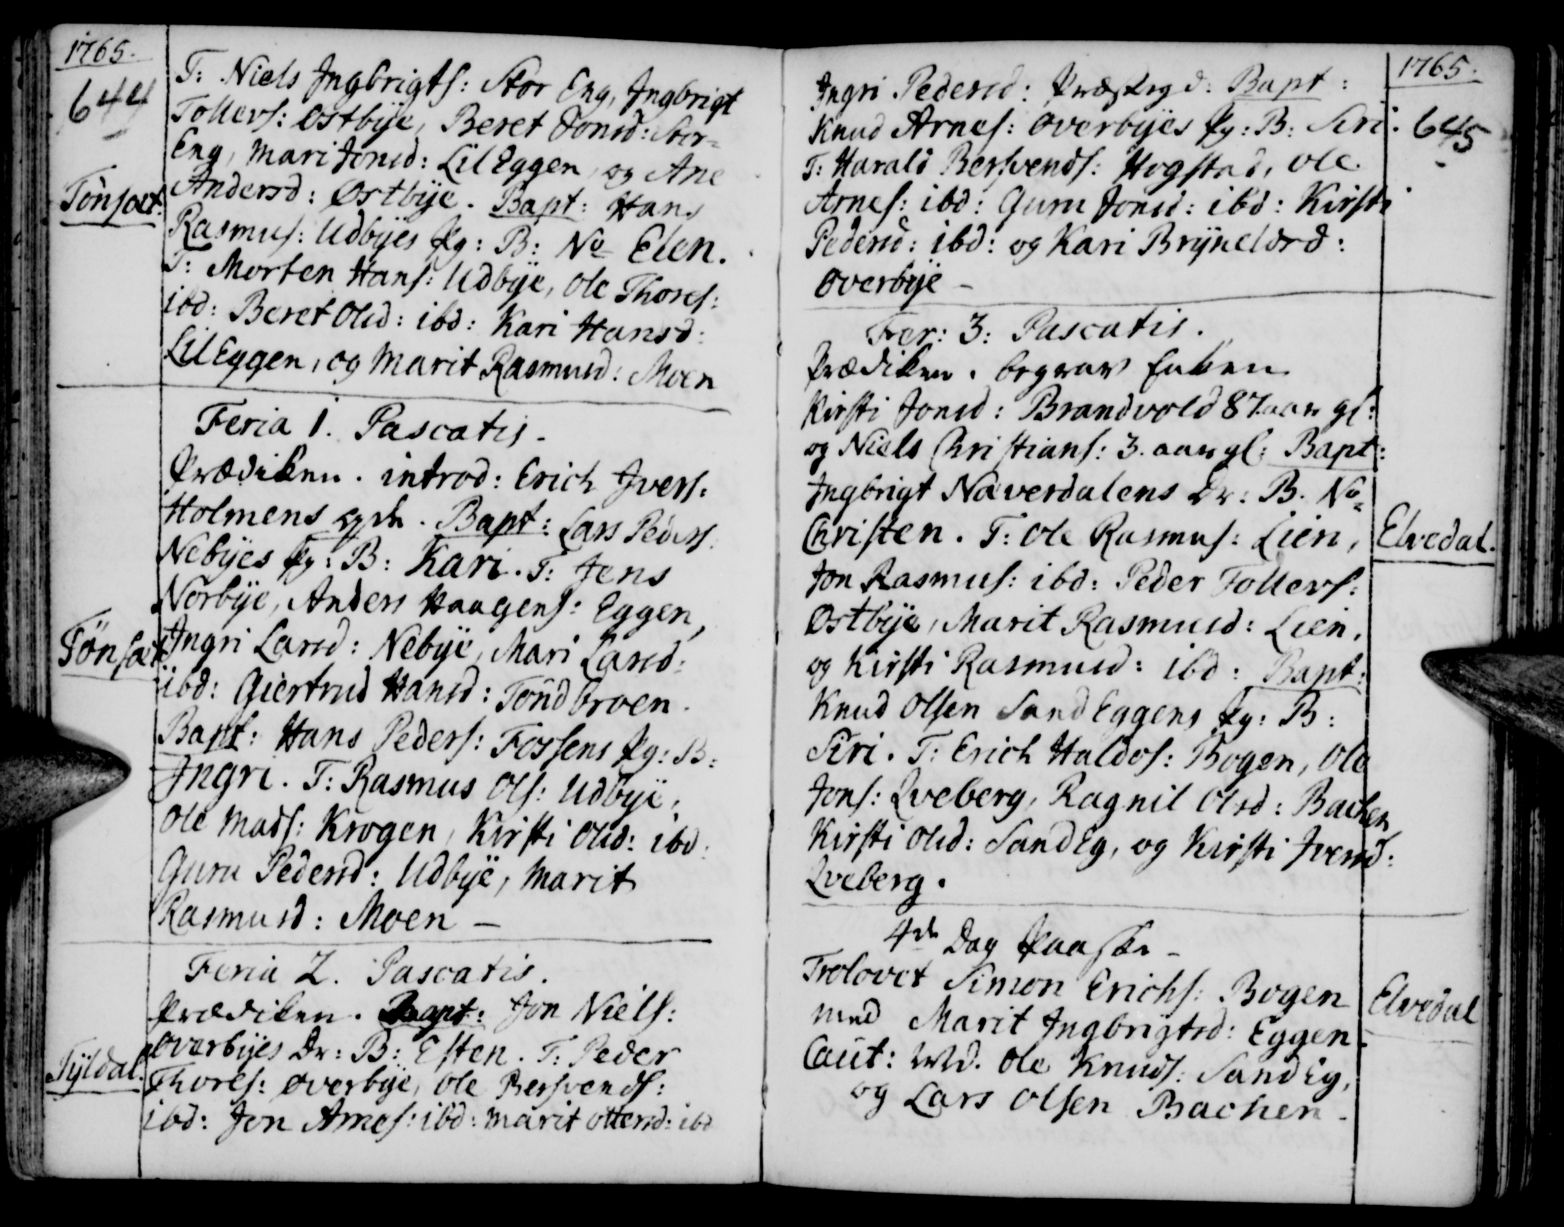 1765.
644
T: Niels Ingbrigts: Stor Eng, Ingbrigt
Tollers: Østbÿe, Beret Jonsd: Stor-
Eng, Mari Jonsd: Lil Eggen, og Ane
Tønset:
Andersd: Østbÿe. Bapt: Hans
Rasmus: Udbÿes Pg: B: No Elen.
T: Morten Hans: Udbÿe, Ole Thores:
ibd: Beret Olsd: ibd: Kari Hansd:
Lil Eggen, og Marit Rasmusd: Moen
Feria 1. Pascatis.
Prædiken. introd: Erich Ivers:
Holmens. Bapt: Lars Peders:
Nebÿes Pg: B: Kari. T: Jens
Norbÿe, Anders Haagens: Eggen,
Tønset
Ingri Larsd: Nebÿe, Mari Larsd:
ibd: Giertrud Hansd: Tondbroen.
Bapt: Hans Peders: Fossens Pg: B:
Ingri. T: Rasmus Ols: Udbÿe,
Ole Mads: Krogen, Kirsti Olsd: ibd:
Guru Pedersd: Udbÿe, Marit
Rasmusd: Moen -
Feria 2. Pascatis.
Prædiken. Bapt: Jon Niels:
Overbÿes Dr: B: Esten. T: Peder
Tÿldal.
Thores: Overbÿe, Ole Bersvends:
ibd: Jon Arnes: ibd: Marit Ottersd: ibd
1765.
645
Ingri Pedersd: Bapt:
Knud Arnes: Overbÿes Pg: B: Siri.
T: Harald Bersvends: Hogstad, Ole
Arnes: ibd: Guru Jonsd: ibd: Kirsti
Pedersd: ibd: og Kari Brÿnelsd:
Overbÿe -
Fer: 3: Pascatis.
Prædiken. begrav Enken
Kirsti Jonsd: Brandvold 87 aar gl:
og Niels Christians: 3. aar gl: Bapt:
Ingbrigt Naverdalens Dr: B. No
Elvedal.
Christen. T: Ole Rasmus: Lien,
Jon Rasmus: ibd: Peder Tollers:
Østbÿe, Marit Rasmusd: Lien,
og Kirsti Rasmusd: ibd: Bapt:
Knud Olsen Sand Eggens Pg: B:
Siri. T: Erich Haldos: Bogen, Ole
Jons: Qveberg, Ragnil Olsd: Bachen
Kirsti Olsd: Sand Eg, og Kirsti Iversd:
Qveberg.
4de Dag Paaske -
Trolovet Simon Erichs: Bogen
Elvedal
med Marit Ingbrigtsd: Eggen.
Caut: Wd. Ole Knuds: Sand Eg,
og Lars Olsen Bachen -